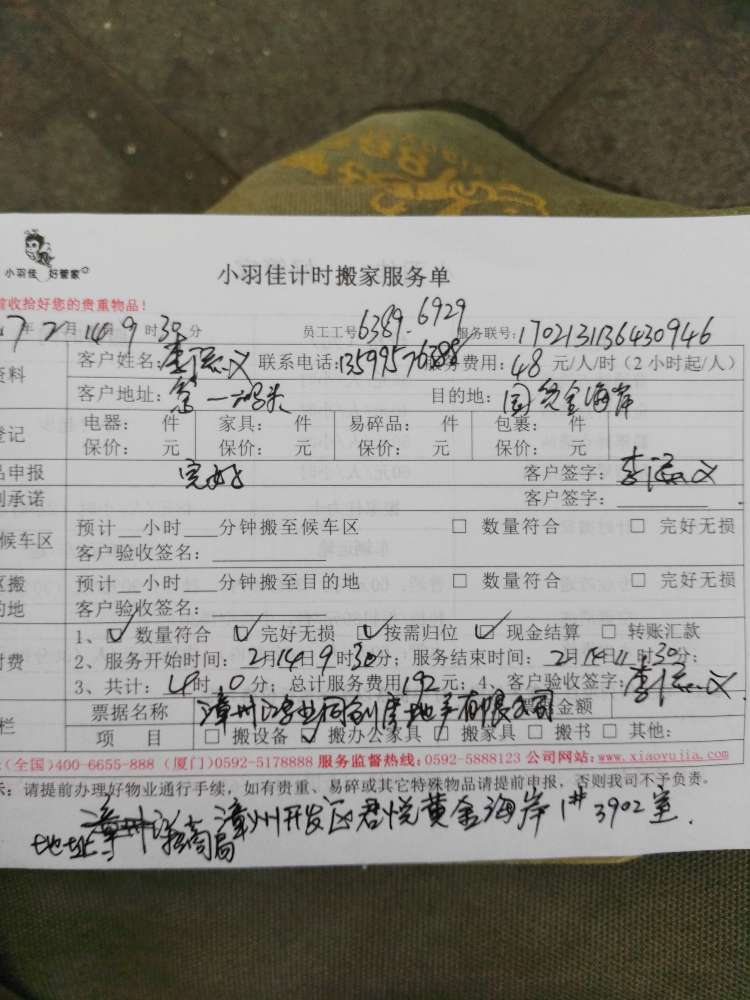 小羽佳 好管家
小羽佳计时搬家服务单
收拾好您的贵重物品！
7年2月14 9时30分 员工工号6389-6929 服务联号:1702131136430946
资料 客户姓名: 联系电话:13599576888 服务费用: 48 元/人/时（2小时起/人）
客户地址: 一码头 目的地: 金海岸
登记 电器： 件 家具： 件 易碎品： 件 包裹： 件
保价： 元 保价： 元 保价： 元 保价： 元
品申报 完好 客户签字：
承诺 客户签字：
候车区 预计__小时___分钟搬至候车区 □ 数量符合 □ 完好无损
客户验收签名：
搬 预计__小时___分钟搬至目的地 □ 数量符合 □ 完好无损
的地 客户验收签名:
1、☑ 数量符合 ☑ 完好无损 ☑ 按需归位 ☑ 现金结算 □ 转账汇款
付费 2、服务开始时间: 2月14日9时30分；服务结束时间: 2月14日11时30分；
3、共计：4时0分；总计服务费用192元；4、客户验收签字：
栏 票据名称 漳州 房地产有限公司 票据金额
项 目 □ 搬设备 ☑ 搬办公家具 □ 搬家具 □ 搬书 □ 其他:
(全国)400-6655-888 (厦门)0592-5178888 服务监督热线:0592-5888123 公司网站:www.xiaoyujia.com
示：请提前办理好物业通行手续，如有贵重、易碎或其它特殊物品请提前申报，否则我司不予负责。
地址 招商局 漳州开发区君悦黄金海岸1# 3902室.